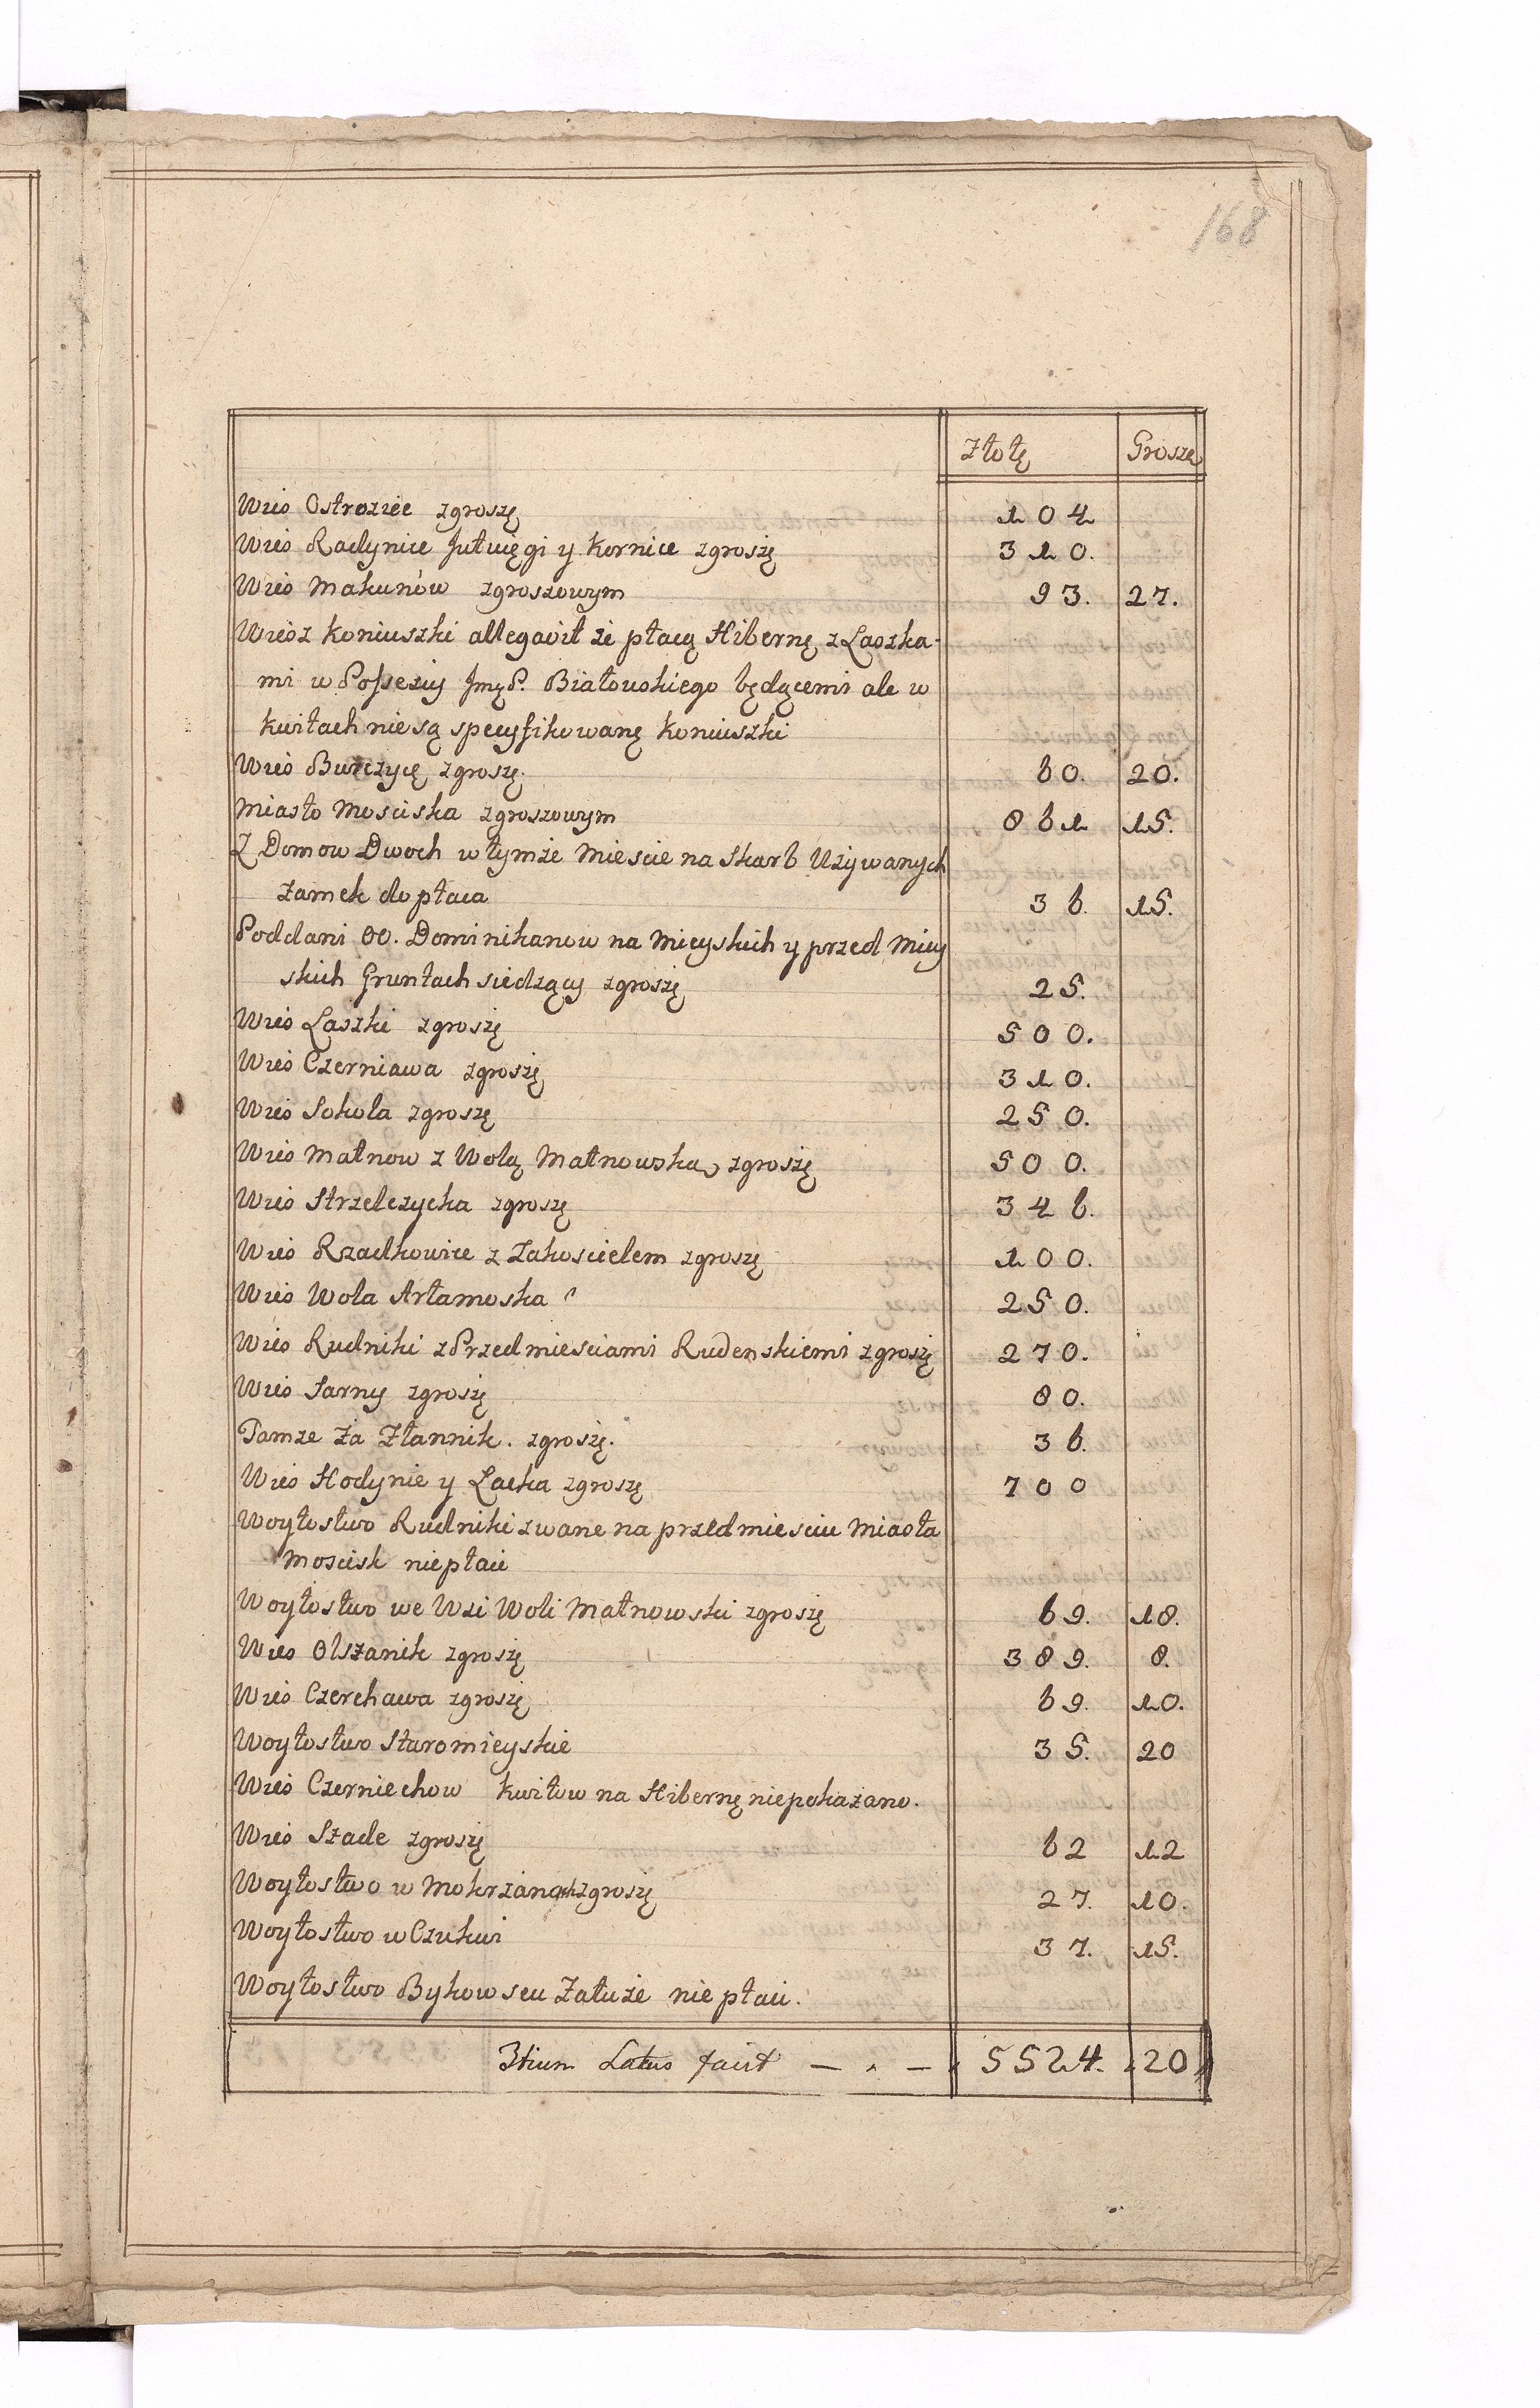 168
Złotę Grosze
Wieś Ostroziec zgroszę 104
Wieś Radynice Jutwięgi y Kornice zgroszę 310.
Wieś Makunów zgroszowym 93. 27.
Wieś z Koniuszki allegavit że płacą Hibernę z Laszka-
mi w Possesiy Jmę P. Białowskiego będącemi ale w
kwitach nie są specyfikowanę Koniuszki
Wieś Burczycę zgroszę. 60. 20.
Miasto Mosciska zgroszowym 861 15.
Z Domow Dwoch w tymże Miescie na Skarb Używanych
zamek dopłaca 36. 15.
Poddani OO. Dominikanow na Mieyskich y przed Miey
skich Gruntach siedzący zgroszę 25.
Wieś Laszki zgroszę 500.
Wieś Czerniawa zgroszę 310.
Wieś Sokola zgroszę 250.
Wieś Małnow z Wolą Małnowską zgroszę 500.
Wieś Strzelczycka zgroszę 346.
Wieś Rzadkowice z Zakoscielem zgroszę 100.
Wieś Wola Artamoska 250.
Wieś Rudniki z Przedmieściami Rudenskiemi zgroszę 270.
Wieś Sarny zgroszę 80.
Tamze za Złannik. zgroszę. 36.
Wieś Hodynie y Lacka zgroszę 700
Woytostwo Rudniki zwane na przedmiesciu Miasta
Moscisk niepłaci
Woytostwo we Wsi Woli Małnowski zgroszę 69. 18.
Wieś Olszanik zgroszę 389. 8.
Wieś Czerchawa zgroszę 69. 10.
Woytostwo Staromieyskie 35. 20
Wieś Czerniechow kwitow na Hibernę niepokazano.
Wieś Szade zgroszę 62 12
Woytostwo w Mokrzanach zgroszę 27. 10.
Woytostwo w Czukwi 37. 15.
Woytostwo Bykow seu Załuże nie płaci.
3tium Latus facit — . — 5524. 20